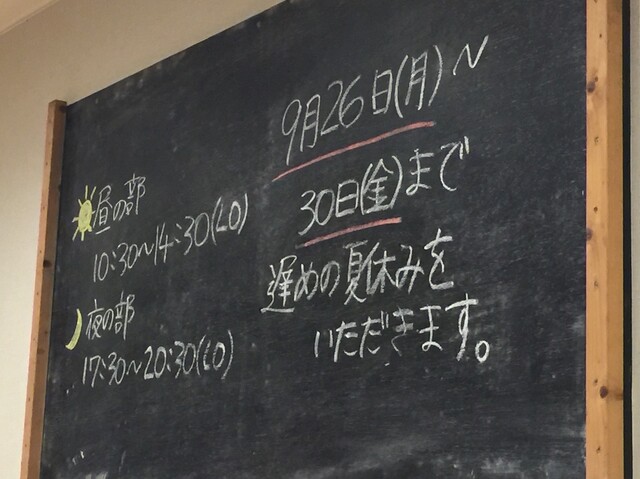 9月26日(月)〜
30日(金)まで
遅めの夏休みを
いただきます。
昼の部
10:30〜14:30(LO)
夜の部
17:30〜20:30(LO)